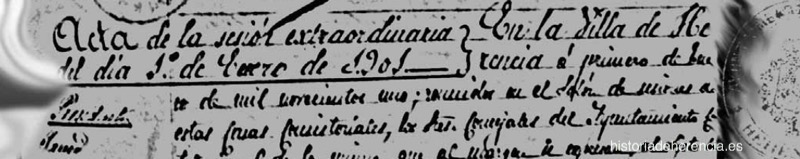 Acta de la sesión extraordinaria
del día 1º de Enero de 1901
En la Villa de He
rencia á primero de Ene
ro de mil novecientos uno; reunidos en el Salón de sesiones de
estas Casas Consistoriales, los Sres. Concejales del Ayuntamiento
historiadeherencia.es